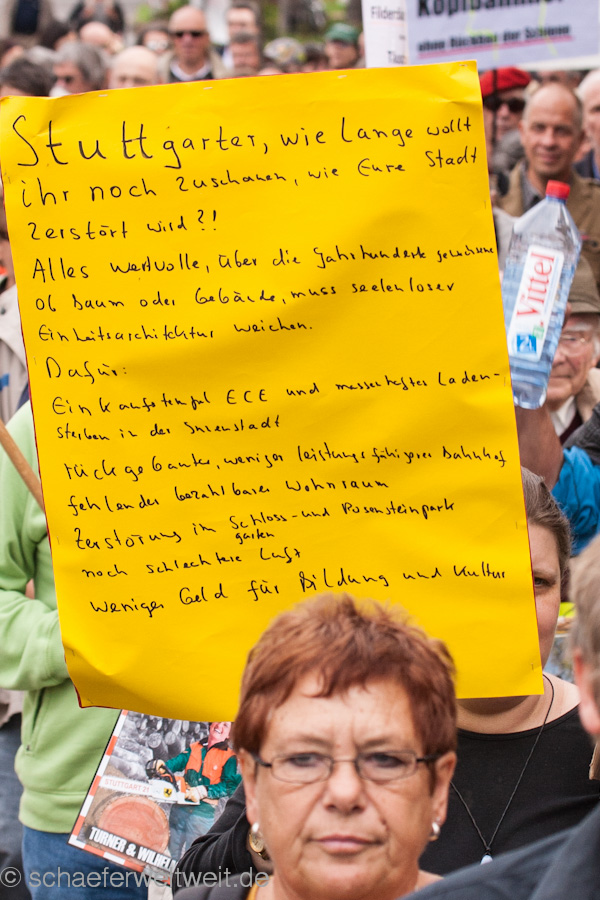 Filder
Kopfbahnhof
ohne Rückbau der Schienen
Stuttgarter, wie lange wollt
ihr noch zuschauen, wie Eure Stadt
zerstört wird?!
Alles wertvolle, über die Jahrhunderte gewachsene
ob Baum oder Gebäude, muss seelenloser
Einheitsarchitektur weichen.
Dafür:
Einkaufstempel ECE und massenhaftes Laden-
sterben in der Innenstadt
rückgebauter, weniger leistungsfähigerer Bahnhof
fehlender bezahlbarer Wohnraum
Zerstörung im Schloss- und Rosensteinpark
garten
noch schlechtere Luft
weniger Geld für Bildung und Kultur
Vittel
STUTTGART 21
TURNER & WILHELM
© schaeferweltweit.de